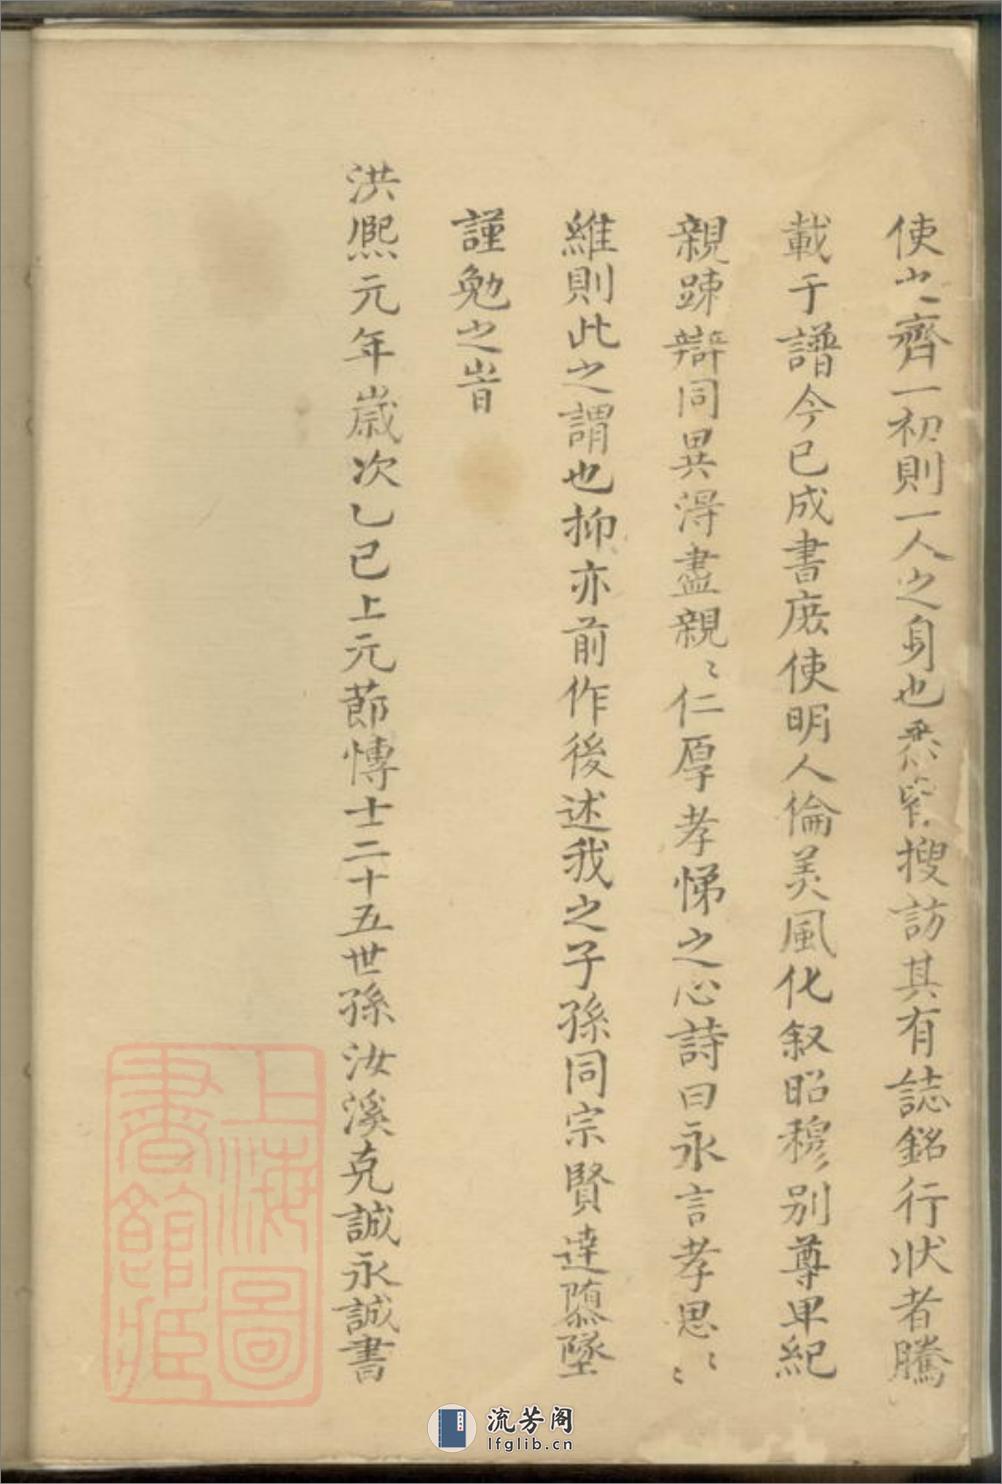 使之齊一初則一人之身也悉皆搜訪其有誌銘行状者騰
載于譜今已成書庶使明人倫美風化叙昭穆别尊卑紀
親踈辯同異得盡親〻仁厚孝悌之心詩曰永言孝思〻〻
維則此之謂也抑亦前作後述我之子孫同宗賢達隳墜
謹勉之旹
洪熈元年歲次乙巳上元節博士二十五世孫汝溪克誠永誠書
上海圖
書館藏
流芳阁
lfglib.cn